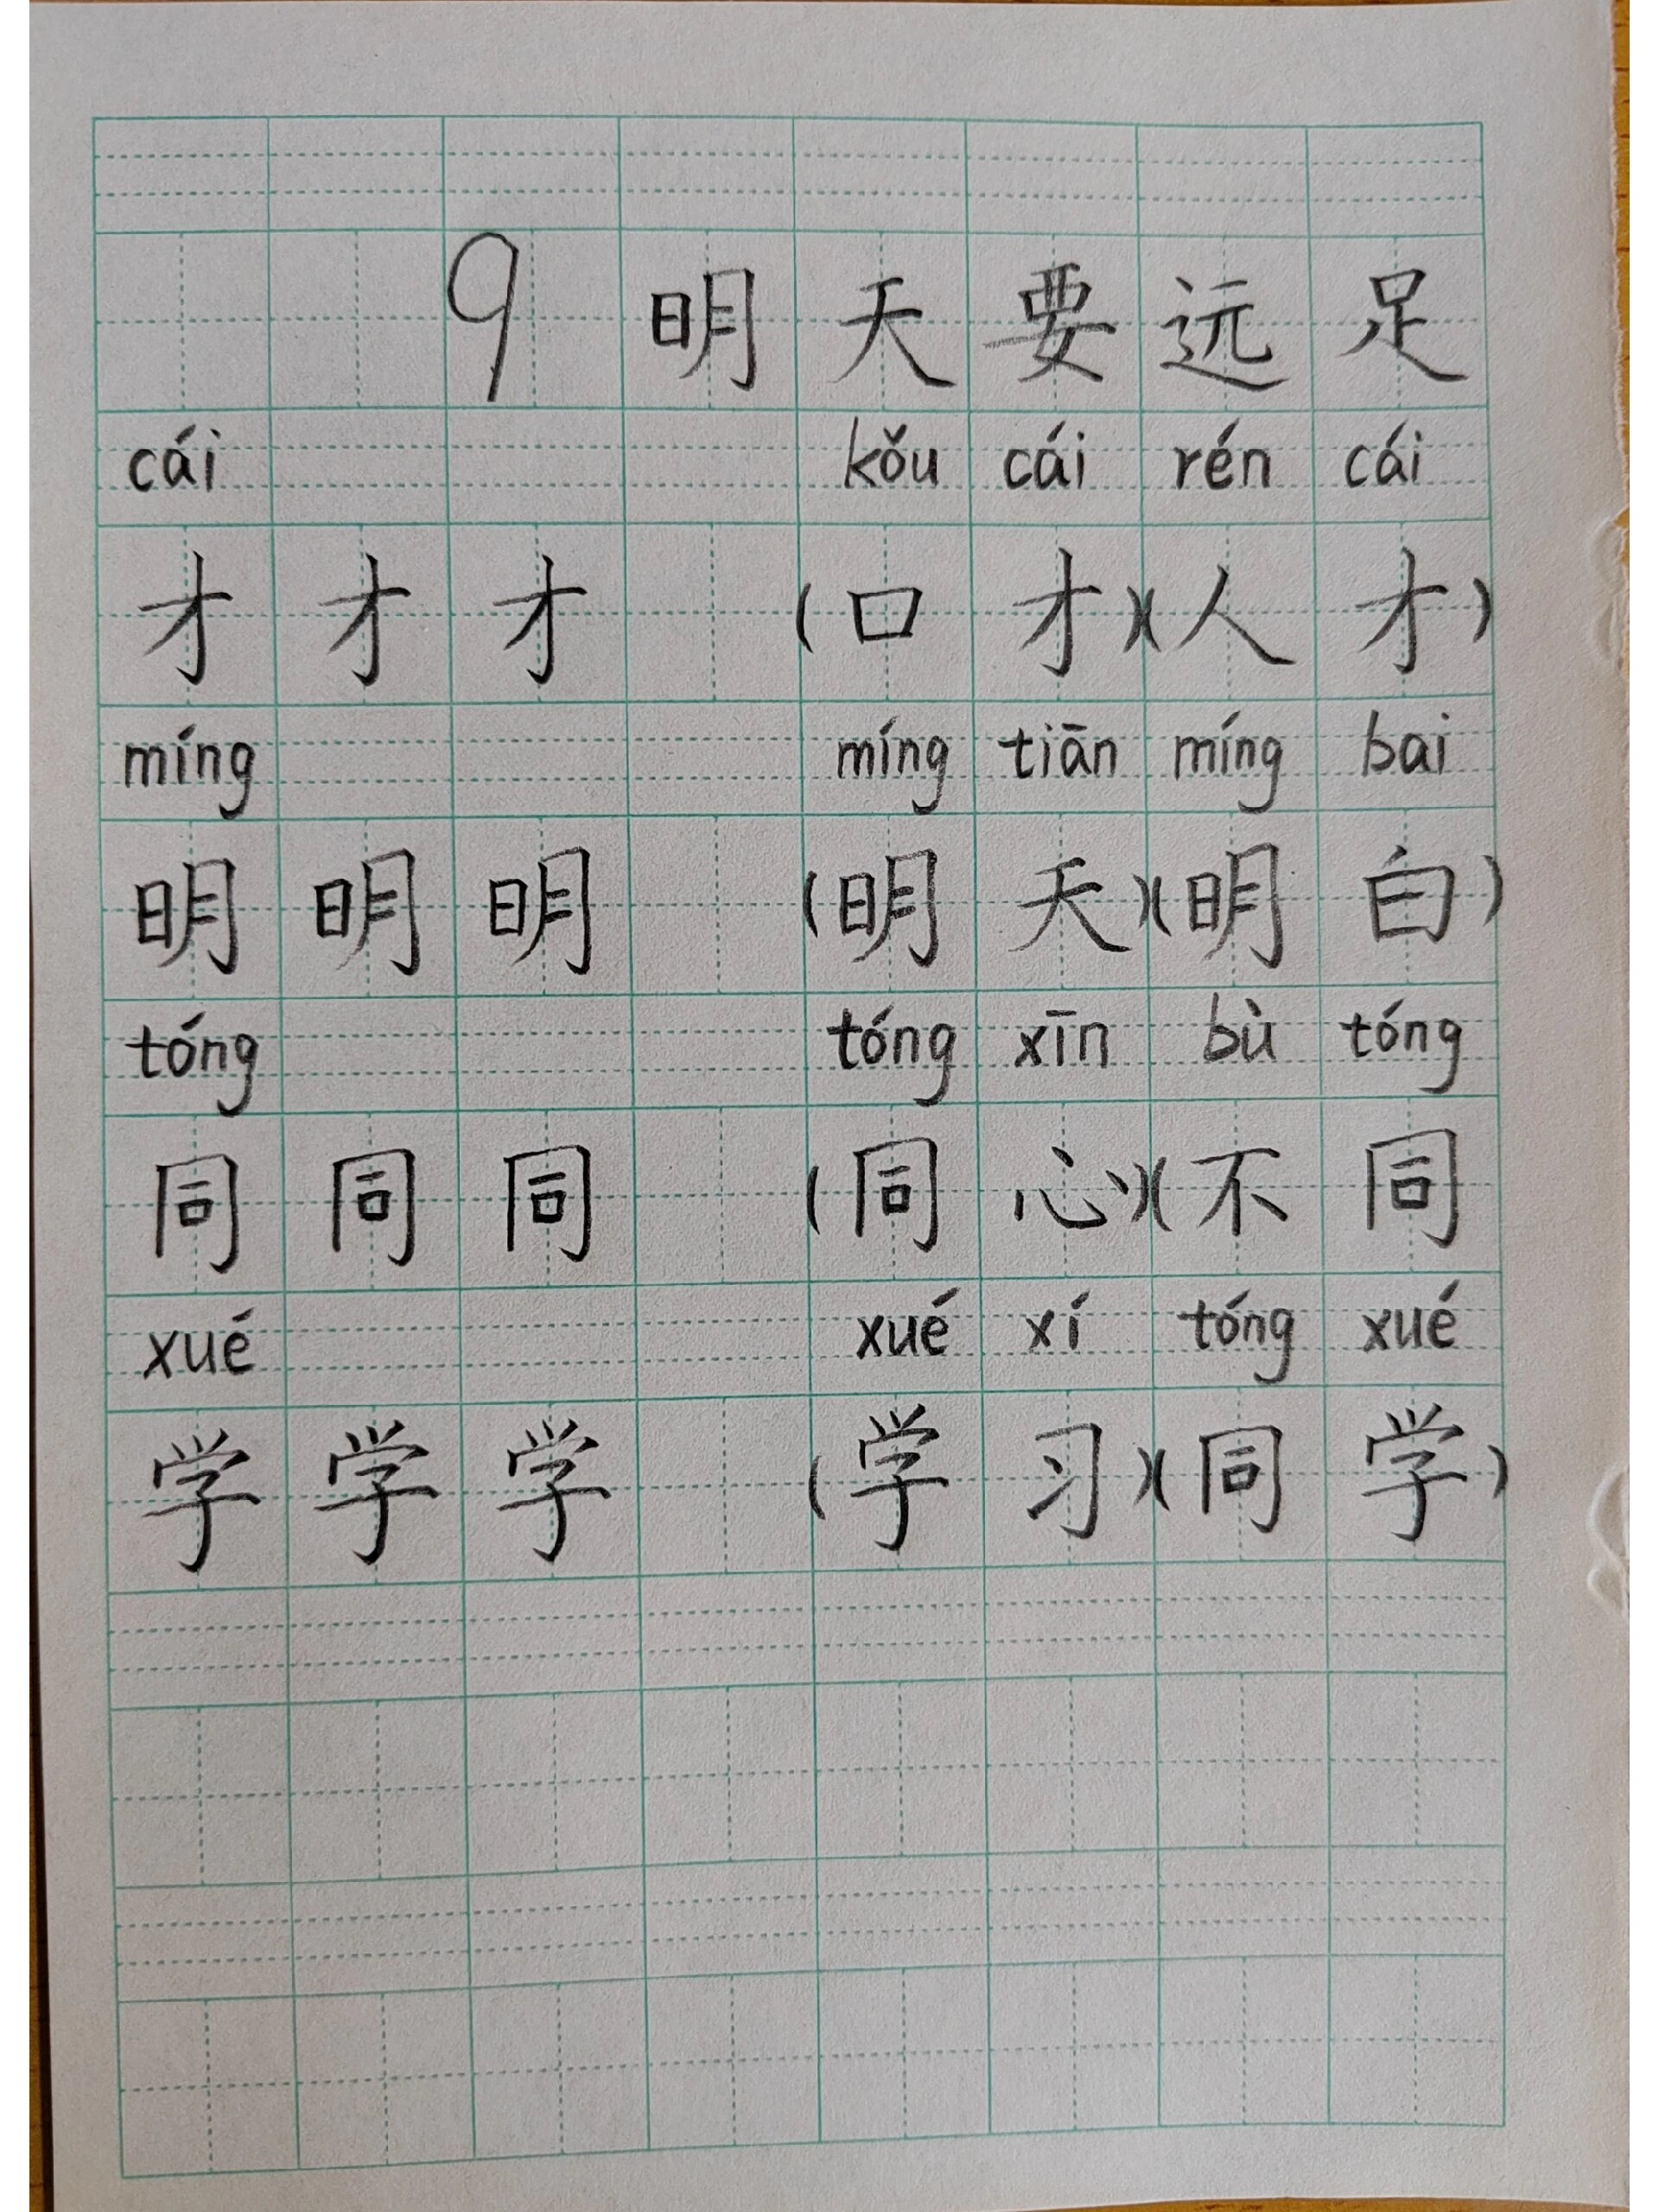 9 明天要远足
cái kǒu cái rén cái
才 才 才 (口才)(人才)
míng míng tiān míng bai
明 明 明 (明天)(明白)
tóng tóng xīn bù tóng
同 同 同 (同心)(不同
xué xué xí tóng xué
学 学 学 (学习)(同学)